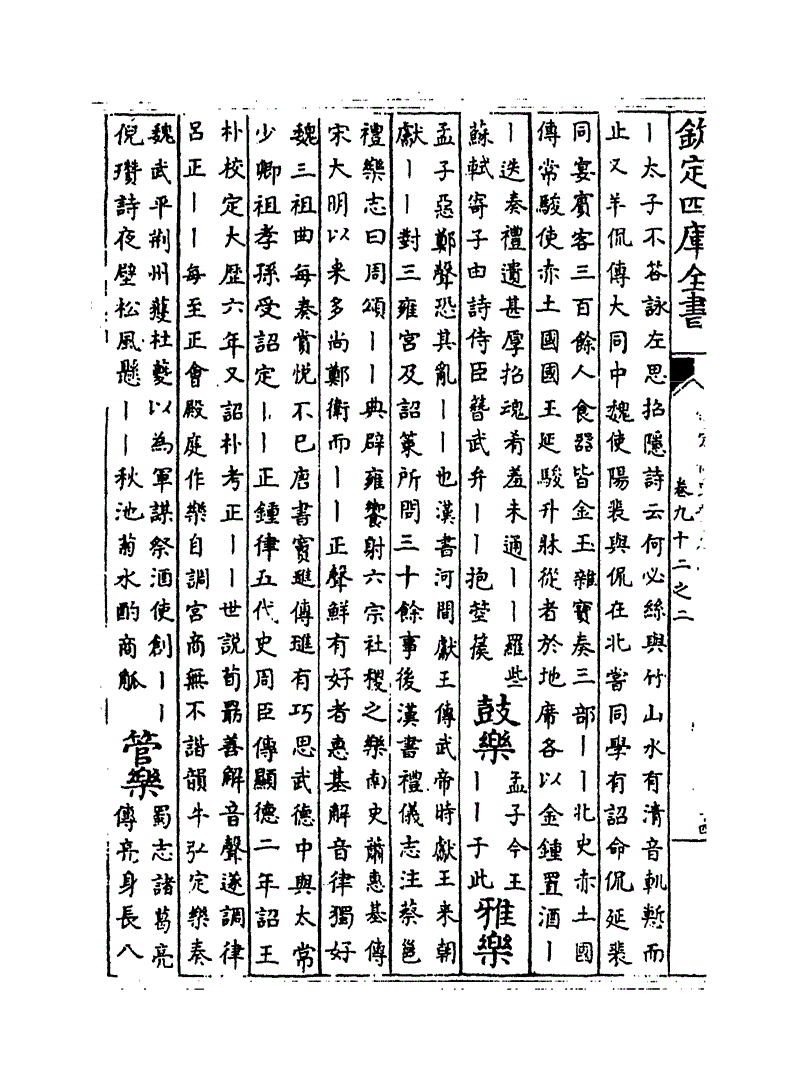 欽定四庫全書
卷九十二之二
｜太子不答詠左思招隱詩云何必絲與竹山水有清音軌慙而
止又羊侃傳大同中魏使陽裴與侃在北嘗同學有詔命侃延裴
同宴賓客三百餘人食器皆金玉雜寶奏三部｜｜北史赤土國
傳常駿使赤土國國王延駿升牀從者於地席各以金鍾置酒｜
｜迭奏禮遺甚厚招魂肴羞未通｜｜羅些
蘇軾寄子由詩侍臣簪武弁｜｜抱箜篌
鼓樂
孟子今王
｜｜于此
雅樂
孟子惡鄭聲恐其亂｜｜也漢書河間獻王傳武帝時獻王来朝
獻｜｜對三雍宮及詔策所問三十餘事後漢書禮儀志注蔡邕
禮樂志曰周頌｜｜典辟雍饗射六宗社稷之樂南史蕭惠基傳
宋大明以来多尚鄭衛而｜｜正聲鮮有好者惠基解音律獨好
魏三祖曲每奏賞悦不已唐書竇璡傳璡有巧思武德中與太常
少卿祖孝孫受詔定｜｜正鍾律五代史周臣傳顯德二年詔王
朴校定大歴六年又詔朴考正｜｜世説荀勗善解音聲遂調律
吕正｜｜每至正會殿庭作樂自調宮商無不諧韻牛弘定樂奏
魏武平荆州獲杜夔以為軍謀祭酒使創｜｜
倪瓚詩夜壁松風懸｜｜秋池菊水酌商觚
管樂
蜀志諸葛亮
傳亮身長八